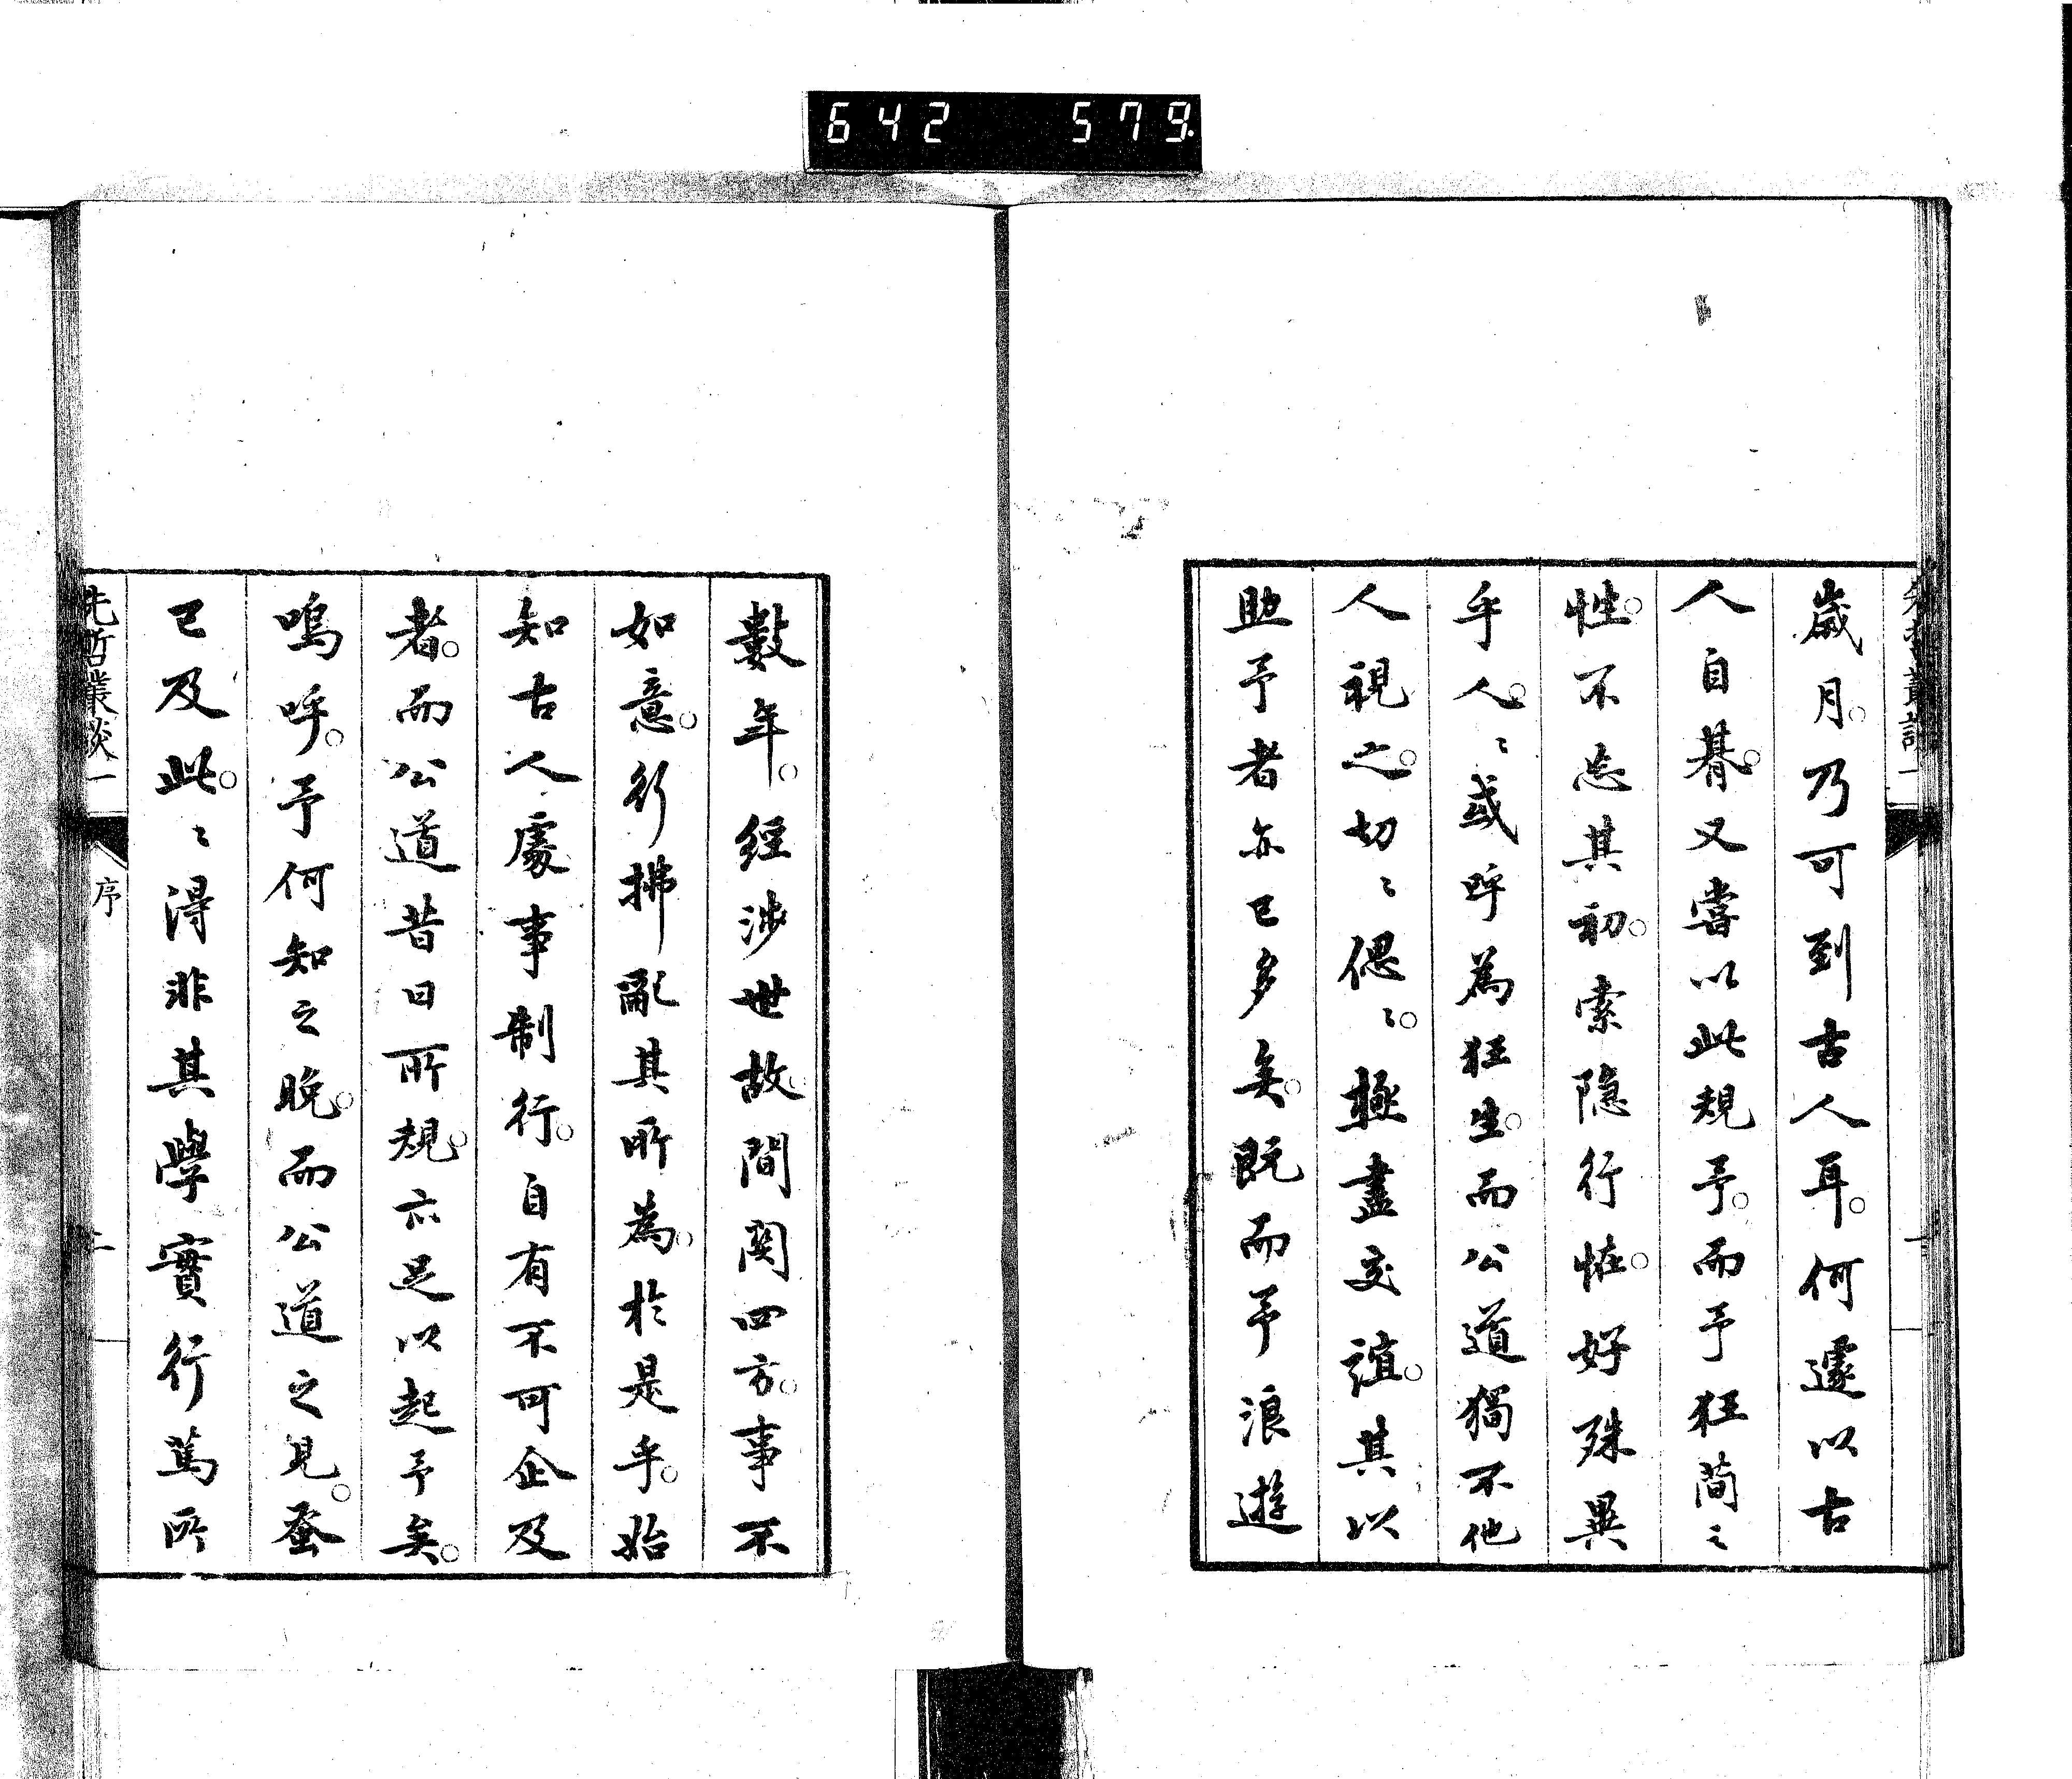 642 579.
先哲叢談一
歲月。乃可到古人耳。何遽以古
人自朞。又嘗以此規予。而予狂簡之
性。不忘其初。索隐行恠。好殊異
乎人。人〻或呼為狂生。而公道獨不他
人視之。切〻偲〻。極盡交誼。其以
助予者亦已多矣。既而予浪遊
數年。經涉世故。間関四方。事不
如意。行拂亂其所為。於是乎。始
知古人處事制行。自有不可企及
者。而公道昔日所規。亦足以起予矣。
嗚呼。予何知之晚。而公道之見。蚤
已及此。〻得非其學實行篤所
先哲叢談一
序
二